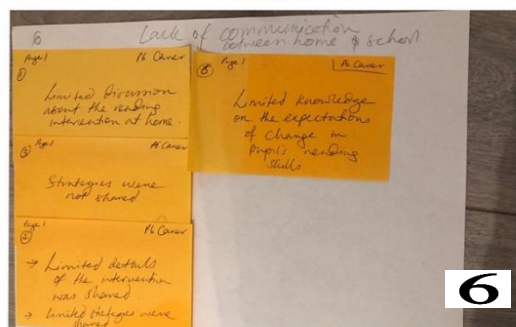 6
Lack of communication
between home & school
Page 1 P6 Carer
①
Limited Discussion
about the reading
intervention at home.
Page 1 P6 Carer
Strategies were
not shared
Page 1 P6 Carer
→ Limited details
of the intervention
was shared.
→ Limited strategies were
shared
Page 1 P6 Carer
Limited knowledge
on the expectations
of change in
pupil's reading
skills
6